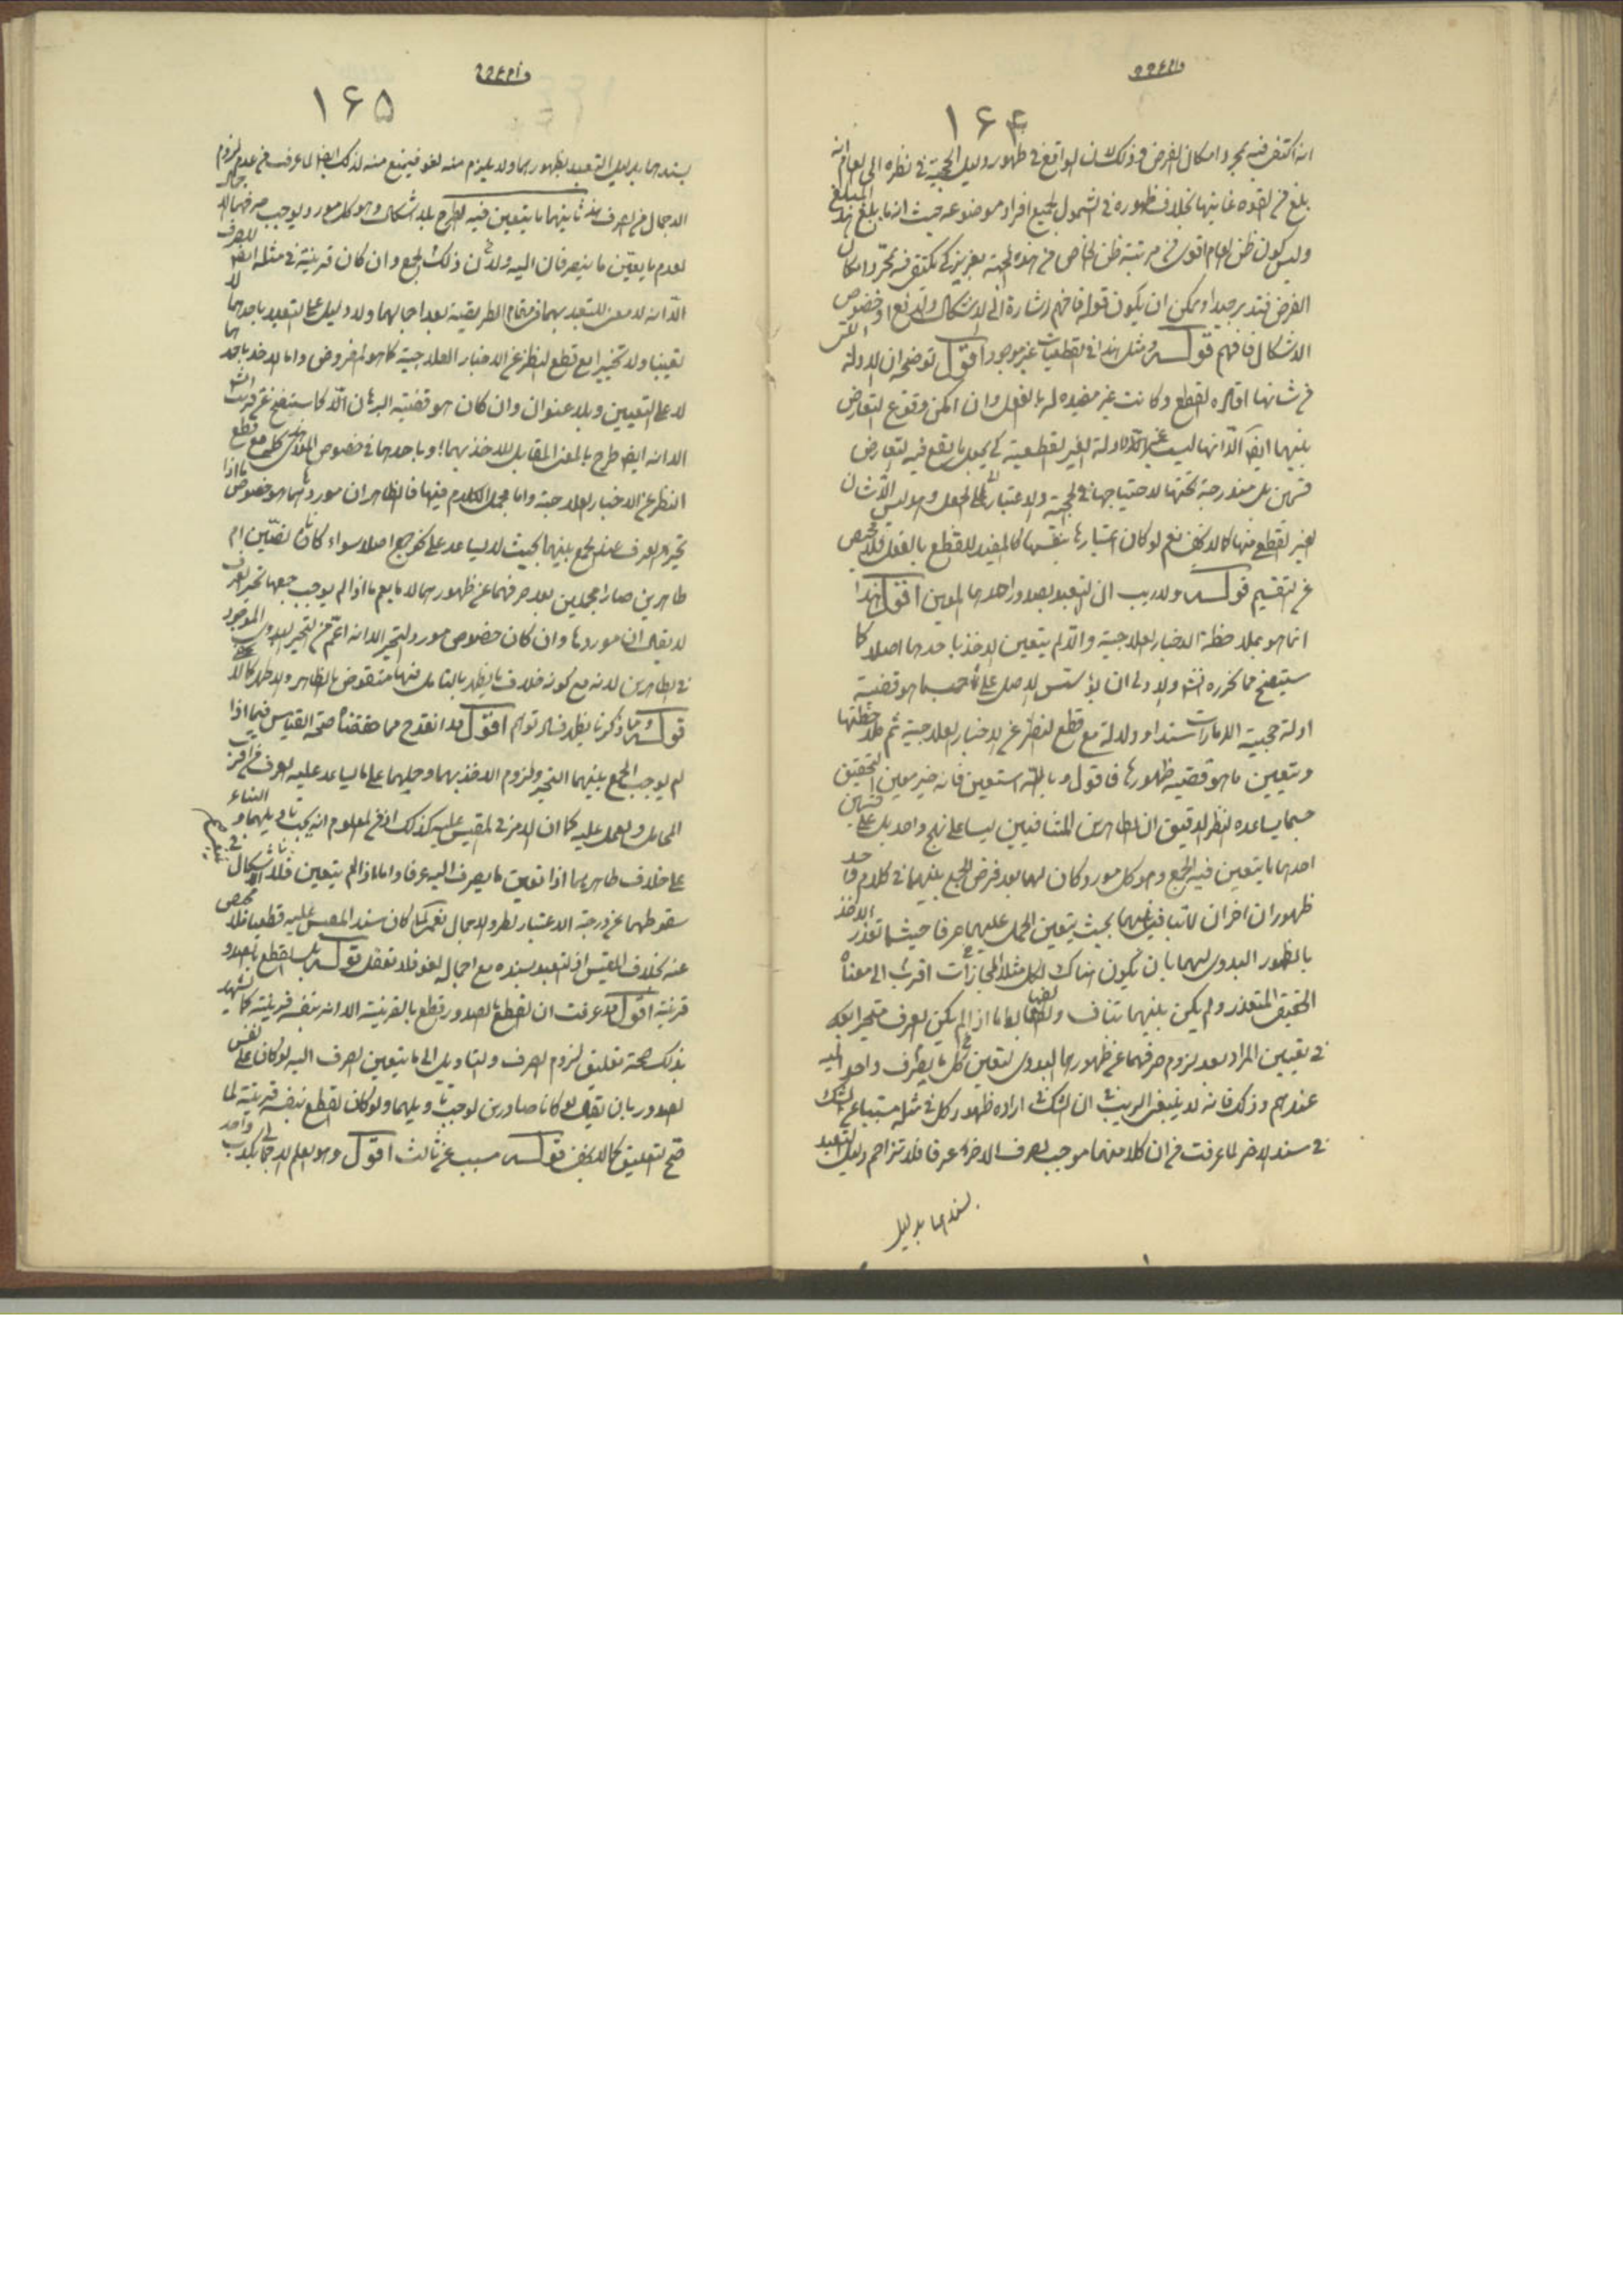 ۱۶۴
انه اكتفى فيه بمجرد امكان الفرض وذلك لان الواقع فى ظهور دليل الحجية فى نظره الى العام انه
بلغ من القوه غايتها بخلاف ظهوره فى الشمول لجميع افراد موضوعه حيث انه ما بلغ هذا المبلغ
وليس كون ظن العام اقوى من مرتبة ظن الخاص من هذه الجهة بعزيز كى يكتفى فيه بمجرد امكان
الفرض فتدبر جيدا ويمكن ان يكون قوله فافهم اشارة الى الاشكال
الاشكال فافهم قوله ومثل هذا فى القطعيات غير موجود اقول توضيحه ان الادلة
من شانها افاده القطع وكانت غير مفيده له بالفعل وان امكن وقوع التعارض
بينهما ايضا الّا انها ليست الادلة الغير القطعية كى يعمل ما يقع فيه التعارض
بل مندرجة تحتها لاحتياجها فى الحجية والاعتبار الى الجعل وهو ليس الّا شان
الغير القطعى منها كما لا يخفى نعم لو كان اعتبارها بنفسها كالمفيد للقطع بالفعل فلا محيص
عن التقسيم قوله ولا ريب ان التعبد بصدور احدهما المعين اقول هذا
انما هو بملاحظة الاخبار العلاجية والّا لم يتعين الاخذ باحدهما اصلا كما
سيتضح مما نحرره انشاء والاولى ان يؤسس الاصل على حسبما هو قضية
ادلة حجية الامارات سندا ودلالة مع قطع النظر عن الاخبار العلاجية ثم ملاحظتها
وتعيين ما هو قضية ظهورها فاقول وبالله استعين فانه خير معين التحقيق
حسبما يساعده النظر الدقيق ان الظاهرين المتنافيين ليسا على نهج واحد بل على قسمين
احدهما ما يتعين فيه الجمع وهو كل مورد كان لهما بعد فرض الجمع بينهما فى كلام واحد
ظهوران اخران لا تنافى بينهما بحيث يتعين الحمل عليهما عرفا حيثما تعذر الاخذ
بالظهور البدوى لهما بان يكون هناك لكل مثلا مجازات اقرب الى معناه
الحقيقى المتعذر ولم يكن بينهما تناف اذا لم يكن العرف متحيرا
فى تعيين المراد بعد لزوم صرفهما عن ظهورهما البدوى لتعين كل ما يصرف
عندهم وذلك فانه لا ينبغى الريب فى ان الشك فى اراده ظهور كل فى مثله مسبب عن الشك
فى سند الاخر لما عرفت من ان كلا منهما موجب لصرف الاخر عرفا فلا تزاحم دليل التعبد
بسندهما بدليل
۱۶۵
بسندهما بدليل التعبد بظهورهما ولا يلزم منه لغو فيمنع منه لذلك ايضا لما عرفت من عدم لزوم
الاجمال من الصرف ثانيهما ما يتعين فيه الطرح بلا اشكال وهو كل مورد يوجب صرفهما الاجمال
لعدم ما يعين ما ينصرفان اليه ولا ذلك الجمع وان كان قرينة فى مثله ايضا للصرف
الّا انه لا معنى للتعبد بهما فى مقام الطريقية بعد اجمالهما ولا دليل على التعبد باحدهما لا
تعيينا ولا تخييرا مع قطع النظر عن الاخبار العلاجية كما هو المفروض واما الاخذ باحدهما
لا على التعيين وبلا عنوان وان كان هو قضية البرهان الّا كما ستتضح عن قريب انشاء
الّا انه ايضا طرح بالمعنى المقابل للاخذ بهما او باحدهما فى خصوص المؤدى كل مع قطع
النظر عن الاخبار العلاجية واما مجمل الكلام فيها فالظاهر ان موردها هو خصوص ما اذا
تحير العرف فى الجمع بينهما بحيث لا يساعد على نحو جمع اصلا سواء كانا نصين ام
ظاهرين صارا مجملين بعد صرفهما عن ظهورهما لا ما يعم ما اذا لم يوجب جمعهما تحير العرف
لا يقال ان موردها وان كان خصوص مورد التحير الّا انه اعم من التحير البدوى الموجود
فى الظاهرين لانه مع كونه خلاف ما يظهر بالتامل فيها منقوض بالظاهر والاظهر كما لا
قوله ومما ذكرنا يظهر فساد توهم اقول قد انقدح مما حققناه صحة القياس فيما اذا
لم يوجب الجمع بينهما التحير ولزوم الاخذ بهما وحملهما على ما يساعد عليه العرف من اقرب
المحامل والعمل عليه كما ان الامر فى المقيس عليه كذلك اذ من المعلوم انه يجب تاويلهما والبناء
على خلاف ظاهرهما اذا تعين ما يصرف اليه عرفا واما اذا لم يتعين فلا اشكال فى
سقوطهما عن درجة الاعتبار لطرو الاجمال نعم لما كان سند المقيس عليه قطعيا فلا محيص
عنه بخلاف المقيس اذ التعبد بسنده مع اجماله لغو فلا تغفل قوله بل القطع بالصدور
قرينة اقول قد عرفت ان القطع بالصدور قطع بالقرينة الّا انه بنفسه قرينة كما يشهد
بذلك صحة تعليق لزوم الصرف والتاويل الى ما يتعين الصرف اليه لو كان على نفس
الصدور بان يقال لو كانا صادرين لوجب تاويلهما ولو كان القطع بنفسه قرينة لما
صح التعليق كما لا يخفى قوله مسبب عن ثالث اقول وهو العلم الاجمالى بكذب واحد